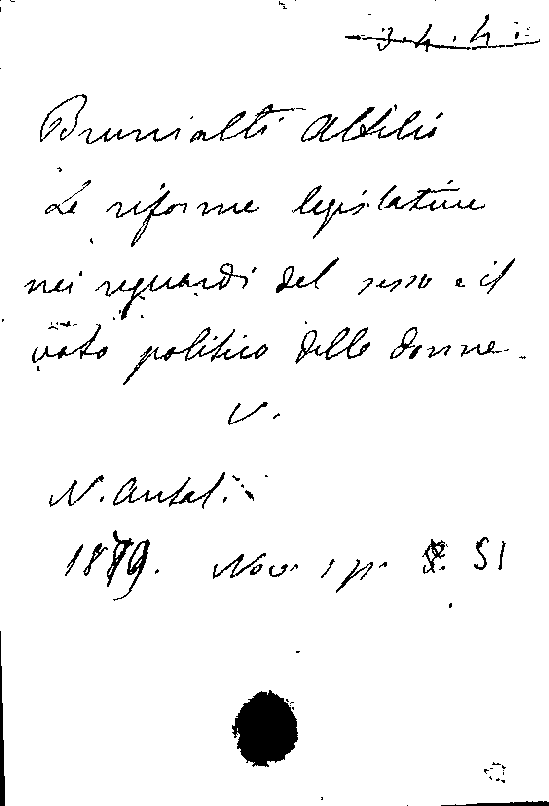 3.4.4.
Brunialti Attilio
Le riforme legislative
nei riguardi del sesso e il
voto politico delle donne.
V.
N. Antol.
1879. Nov. 1 p. 51